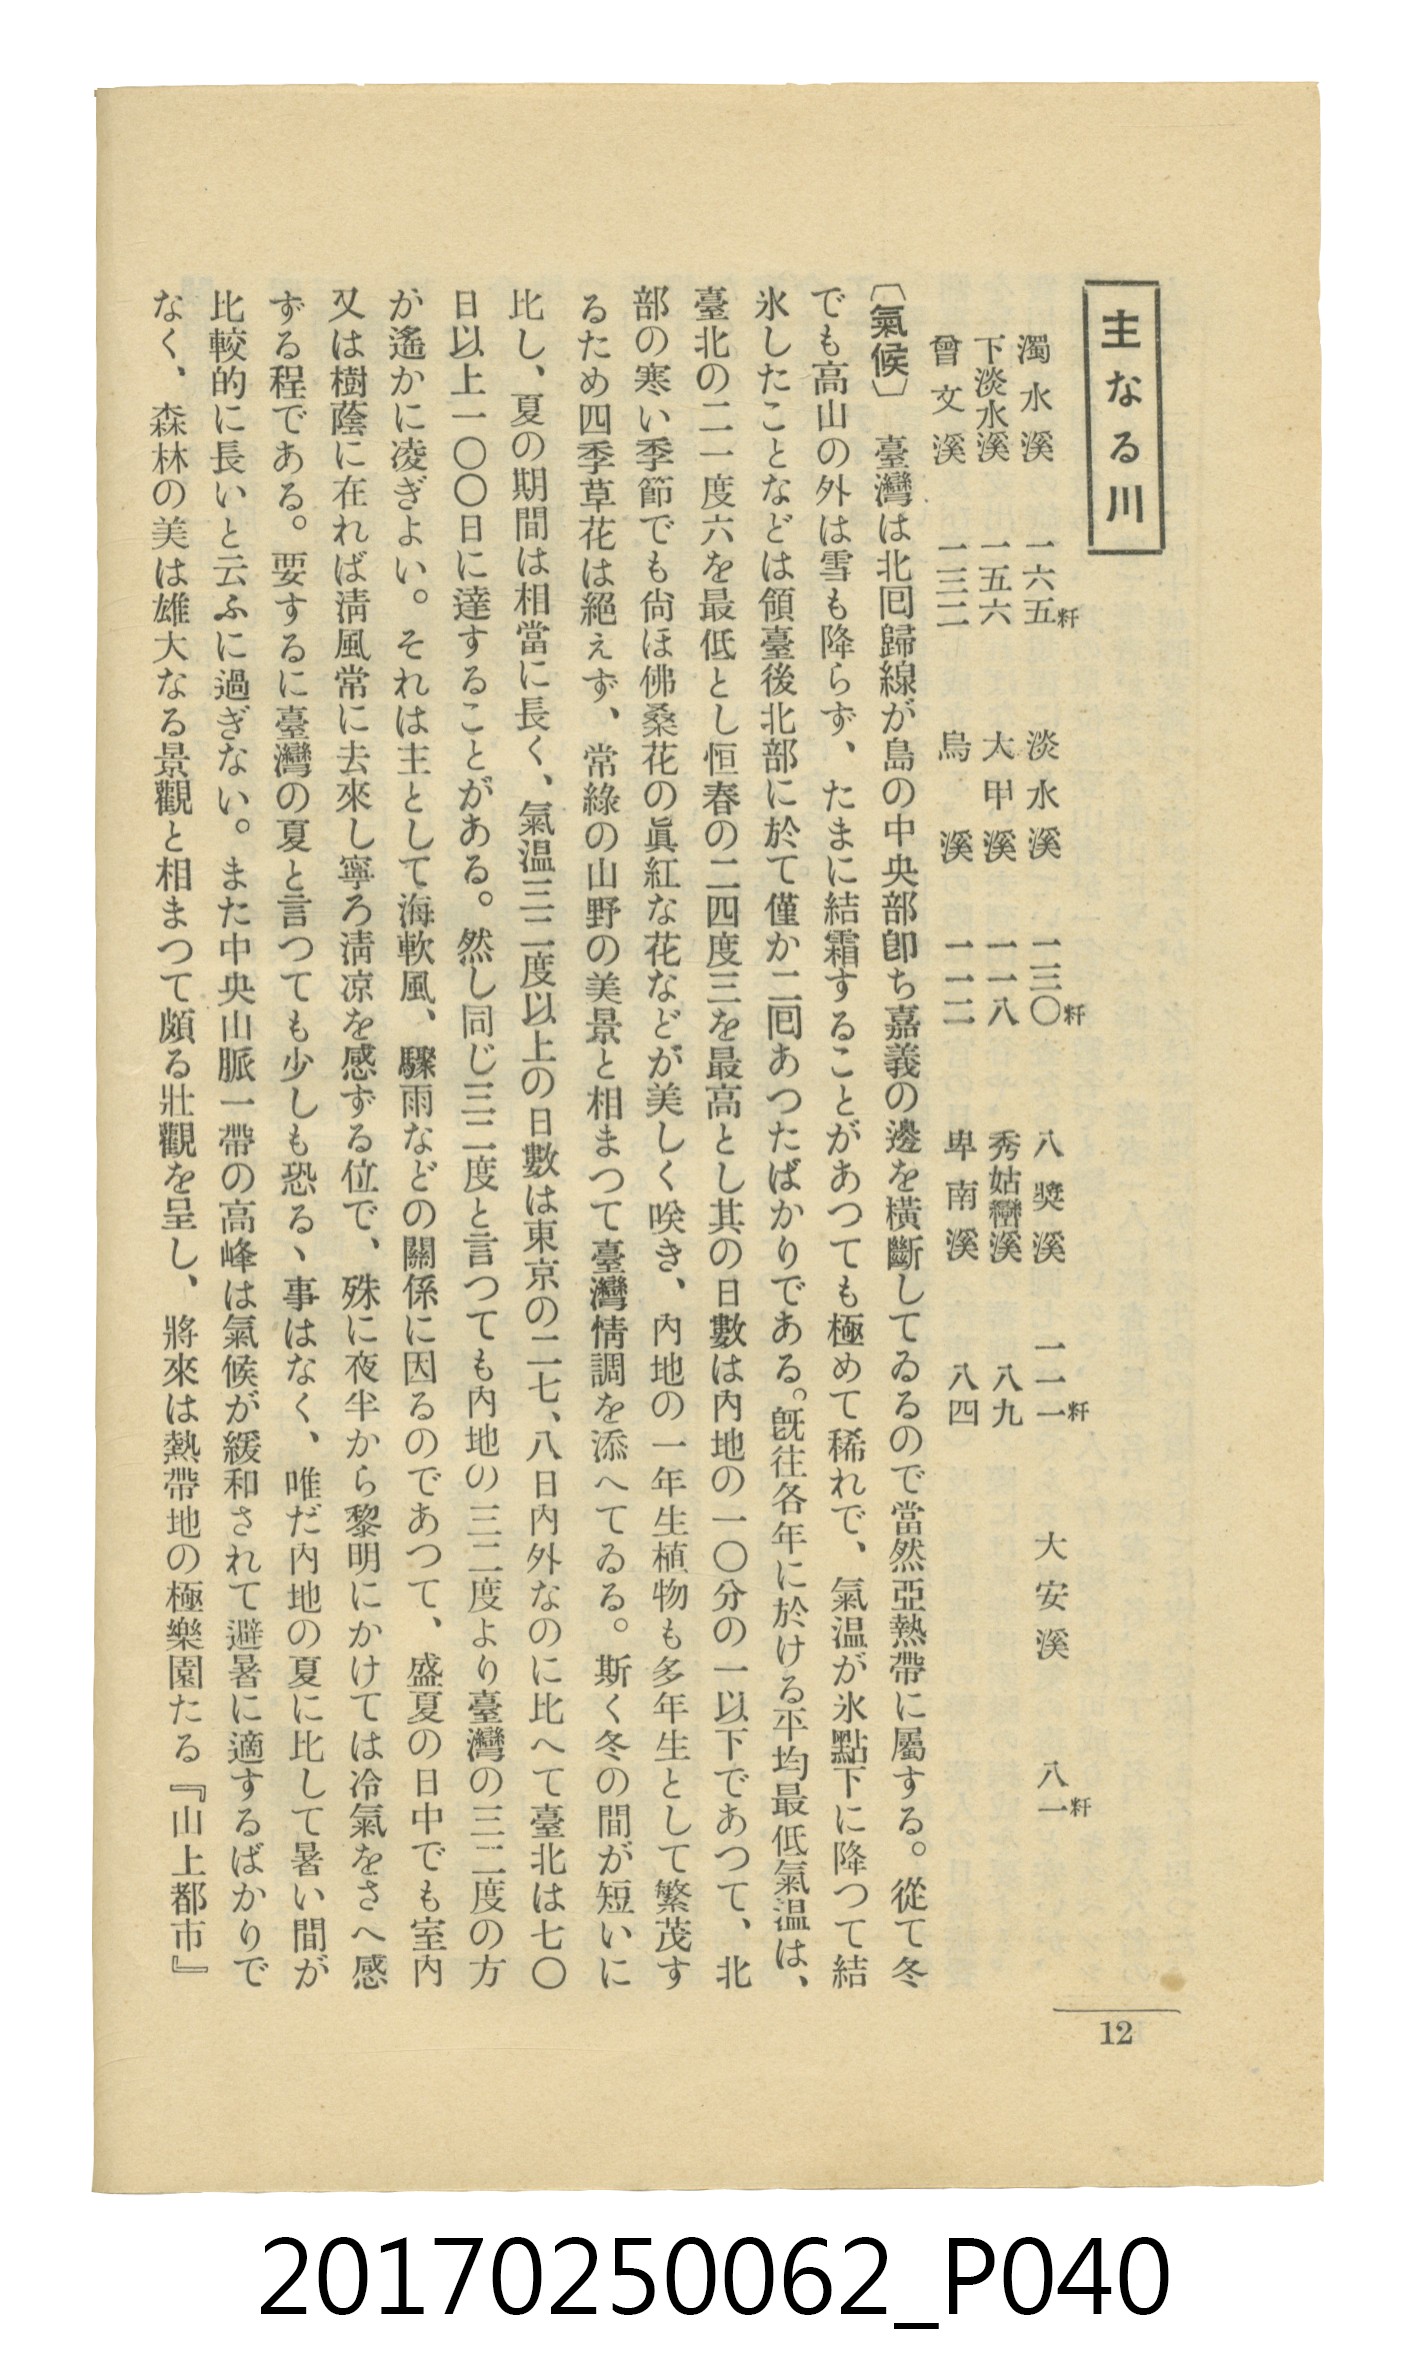 主なる川
濁水溪 一六五粁 淡水溪 一三〇粁 八奬溪 一一一粁 大安溪 八一粁
下淡水溪 一五六 大甲溪 一一八 秀姑巒溪 八九
曾文溪 一三二 烏溪 一一二 卑南溪 八四
〔氣候〕 臺灣は北囘歸線が島の中央部卽ち嘉義の邊を橫斷してゐるので當然亞熱帶に屬する。從て冬
でも高山の外は雪も降らず、たまに結霜することがあつても極めて稀れで、氣温が氷點下に降つて結
氷したことなどは領臺後北部に於て僅か二囘あつたばかりである。旣往各年に於ける平均最低氣温は、
臺北の二一度六を最低とし恒春の二四度三を最高とし其の日數は內地の一〇分の一以下であつて、北
部の寒い季節でも尙ほ佛桑花の眞紅な花などが美しく咲き、內地の一年生植物も多年生として繁茂す
るため四季草花は絕えず、常綠の山野の美景と相まつて臺灣情調を添へてゐる。斯く冬の間が短いに
比し、夏の期間は相當に長く、氣温三二度以上の日數は東京の二七、八日內外なのに比へて臺北は七〇
日以上一〇〇日に達することがある。然し同じ三二度と言つても內地の三二度より臺灣の三二度の方
が遙かに凌ぎよい。それは主として海軟風、驟雨などの關係に因るのであつて、盛夏の日中でも室內
又は樹蔭に在れば淸風常に去來し寧ろ淸凉を感ずる位で、殊に夜半から黎明にかけては冷氣をさへ感
ずる程である。要するに臺灣の夏と言つても少しも恐るヽ事はなく、唯だ內地の夏に比して暑い間が
比較的に長いと云ふに過ぎない。また中央山脈一帶の高峰は氣候が緩和されて避暑に適するばかりで
なく、森林の美は雄大なる景觀と相まつて頗る壯觀を呈し、將來は熱帶地の極樂園たる『山上都市』
12
20170250062_P040